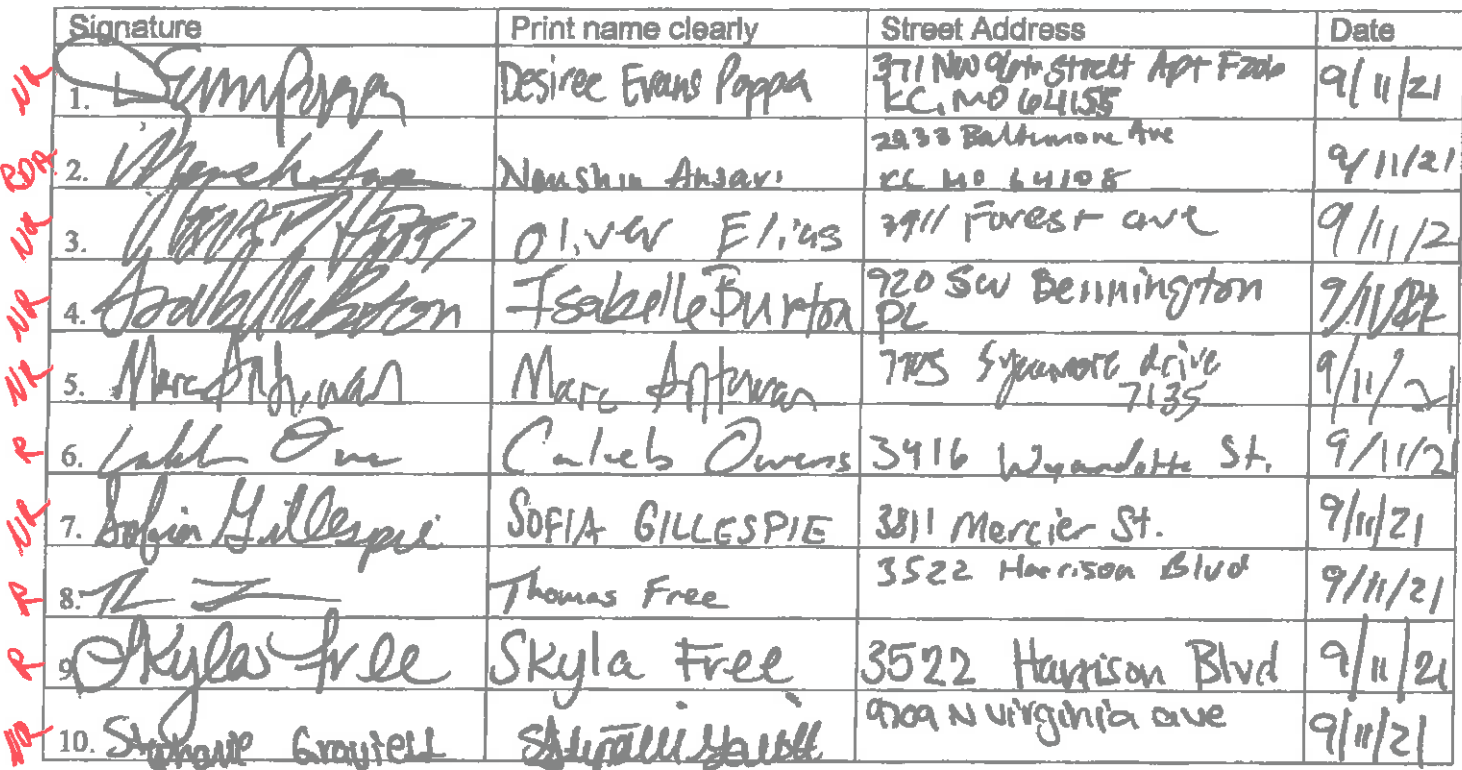 Signature Print name clearly Street Address Date
NR 1. Desiree Evans Poppa 371 NW 96th Street Apt F206 9/11/21
KC, MO 64155
2933 Baltimore Ave
2. Naushin Ansari KC MO 64108 9/11/21
NR 3. Oliver Elias 3911 Forest ave 9/11/2
NR 4. Isabelle Burton Isabelle Burton 920 SW Bennington 9/11/
PL
NR 5. Marc Antwan Marc Antwan Sycamore drive 9/11/21
7135
R 6. Caleb Owens 3416 Wyandotte St. 9/11/2
NR 7. Sofia Gillespie SOFIA GILLESPIE 3811 Mercier St. 9/11/21
R 8. Thomas Free 3522 Harrison Blvd 9/11/21
R 9. Skyla Free Skyla Free 3522 Harrison Blvd 9/11/21
10. Stephanie N Virginia ave 9/11/21